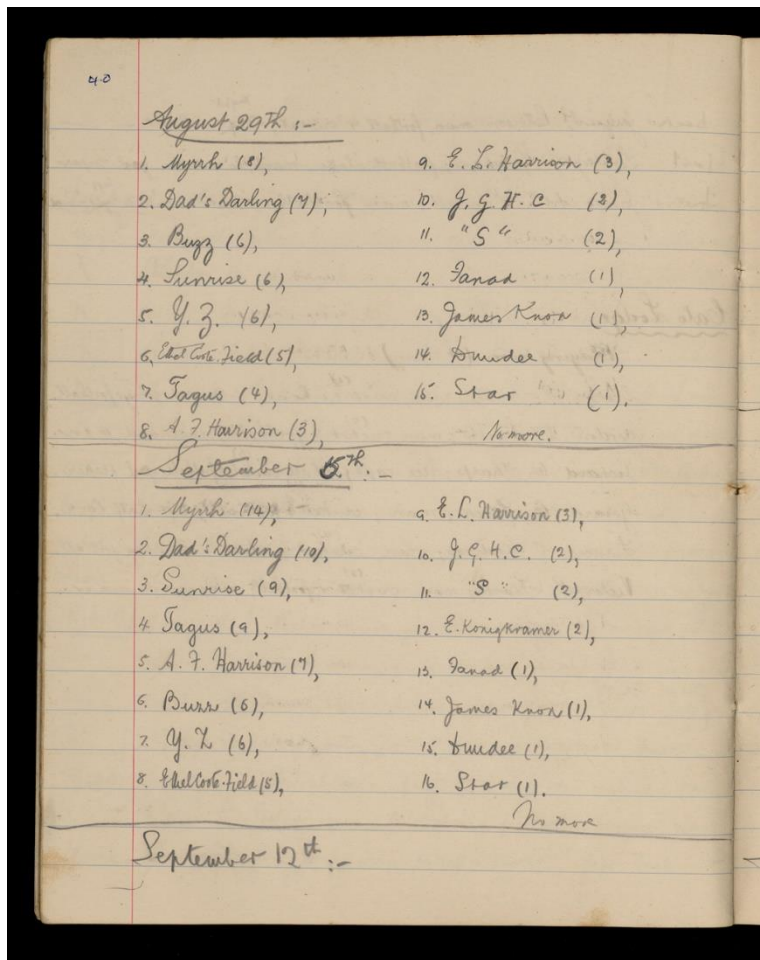 40
August 29th :-
1. Myrrh (8),
2. Dad's Darling (7),
3. Buzz (6),
4. Sunrise (6),
5. Y. Z. (6),
6. Ethel Corte-Field (5),
7. Tagus (4),
8. A. F. Harrison (3),
9. E. L. Harrison (3),
10. J. G. H. C (2),
11. "S" (2),
12. Fanad (1),
13. James Knox (1),
14. Dundee (1),
15. Star (1).
No more.
September 5th :-
1. Myrrh (14),
2. Dad's Darling (10),
3. Sunrise (9),
4. Tagus (9),
5. A. F. Harrison (7),
6. Buzz (6),
7. Y. Z (6),
8. Ethel Corte-Field (5),
9. E. L. Harrison (3),
10. J. G. H. C. (2),
11. "S" (2),
12. E. Konigkramer (2),
13. Fanad (1),
14. James Knox (1),
15. Dundee (1),
16. Star (1).
No more
September 12th :-